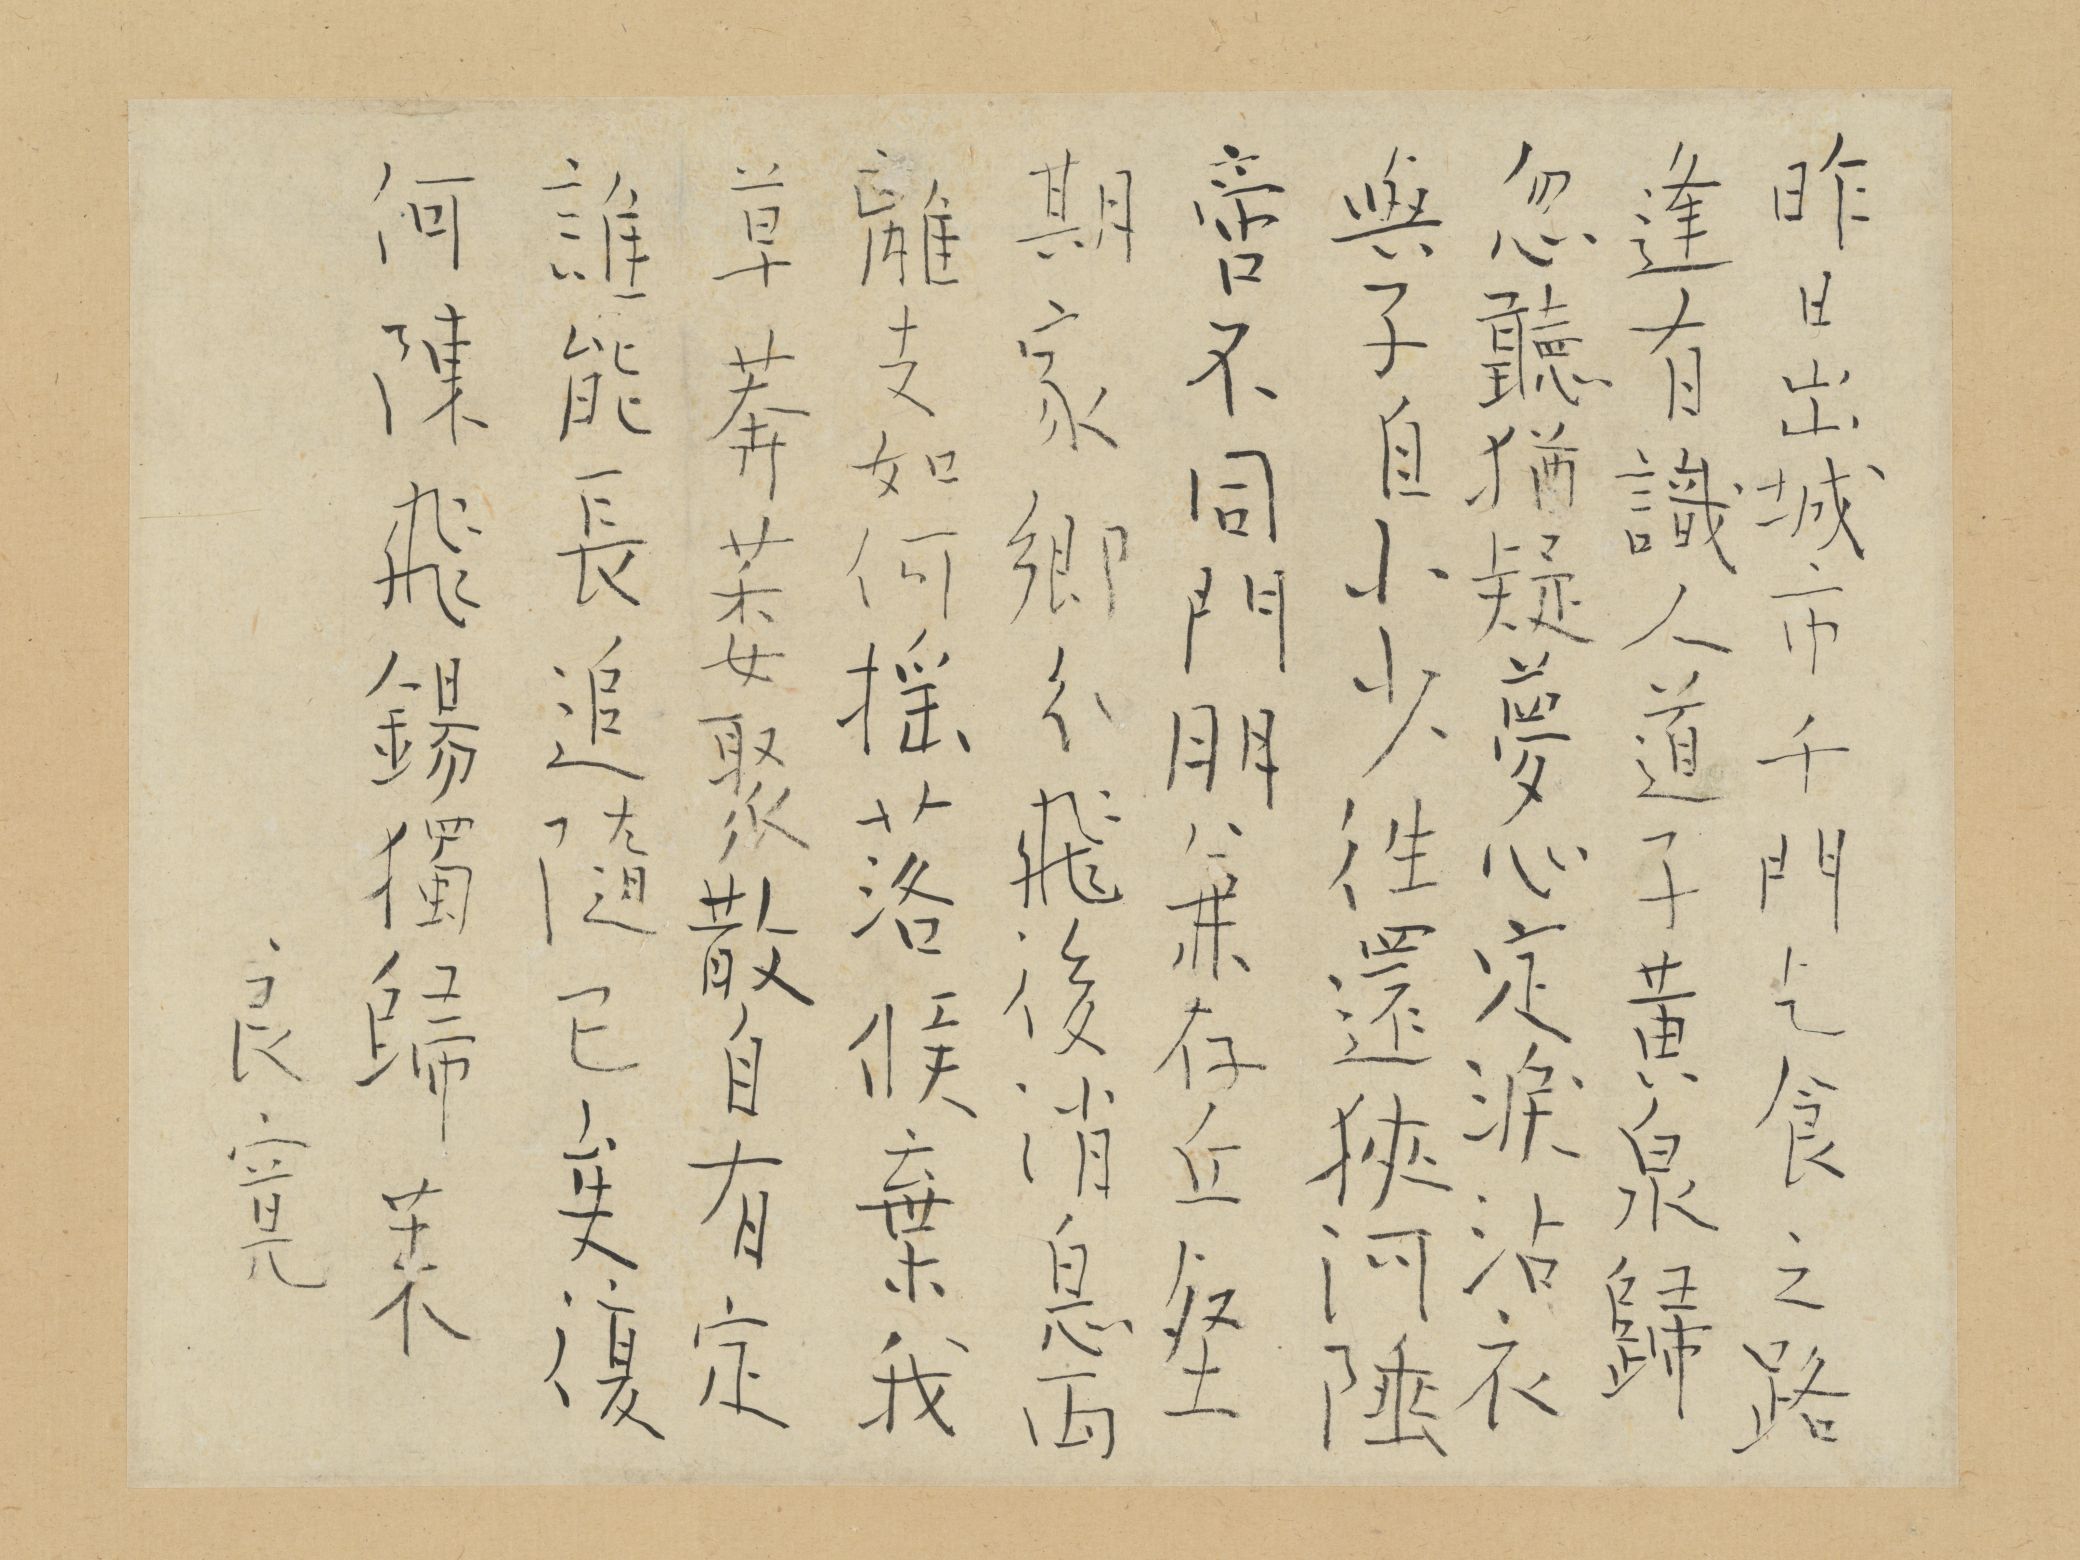 昨日出城市千門乞食之路
逢有識人道子黄泉歸
忽聽猶疑夢心定淚沾衣
與子自小少往還狹河陲
啻不同門朋兼存丘壑
期家鄉分飛後消息兩
離支如何搖落候棄我
草莽萎聚散自有定
誰能長追隨已矣復
何陳飛錫獨歸萊
良寛